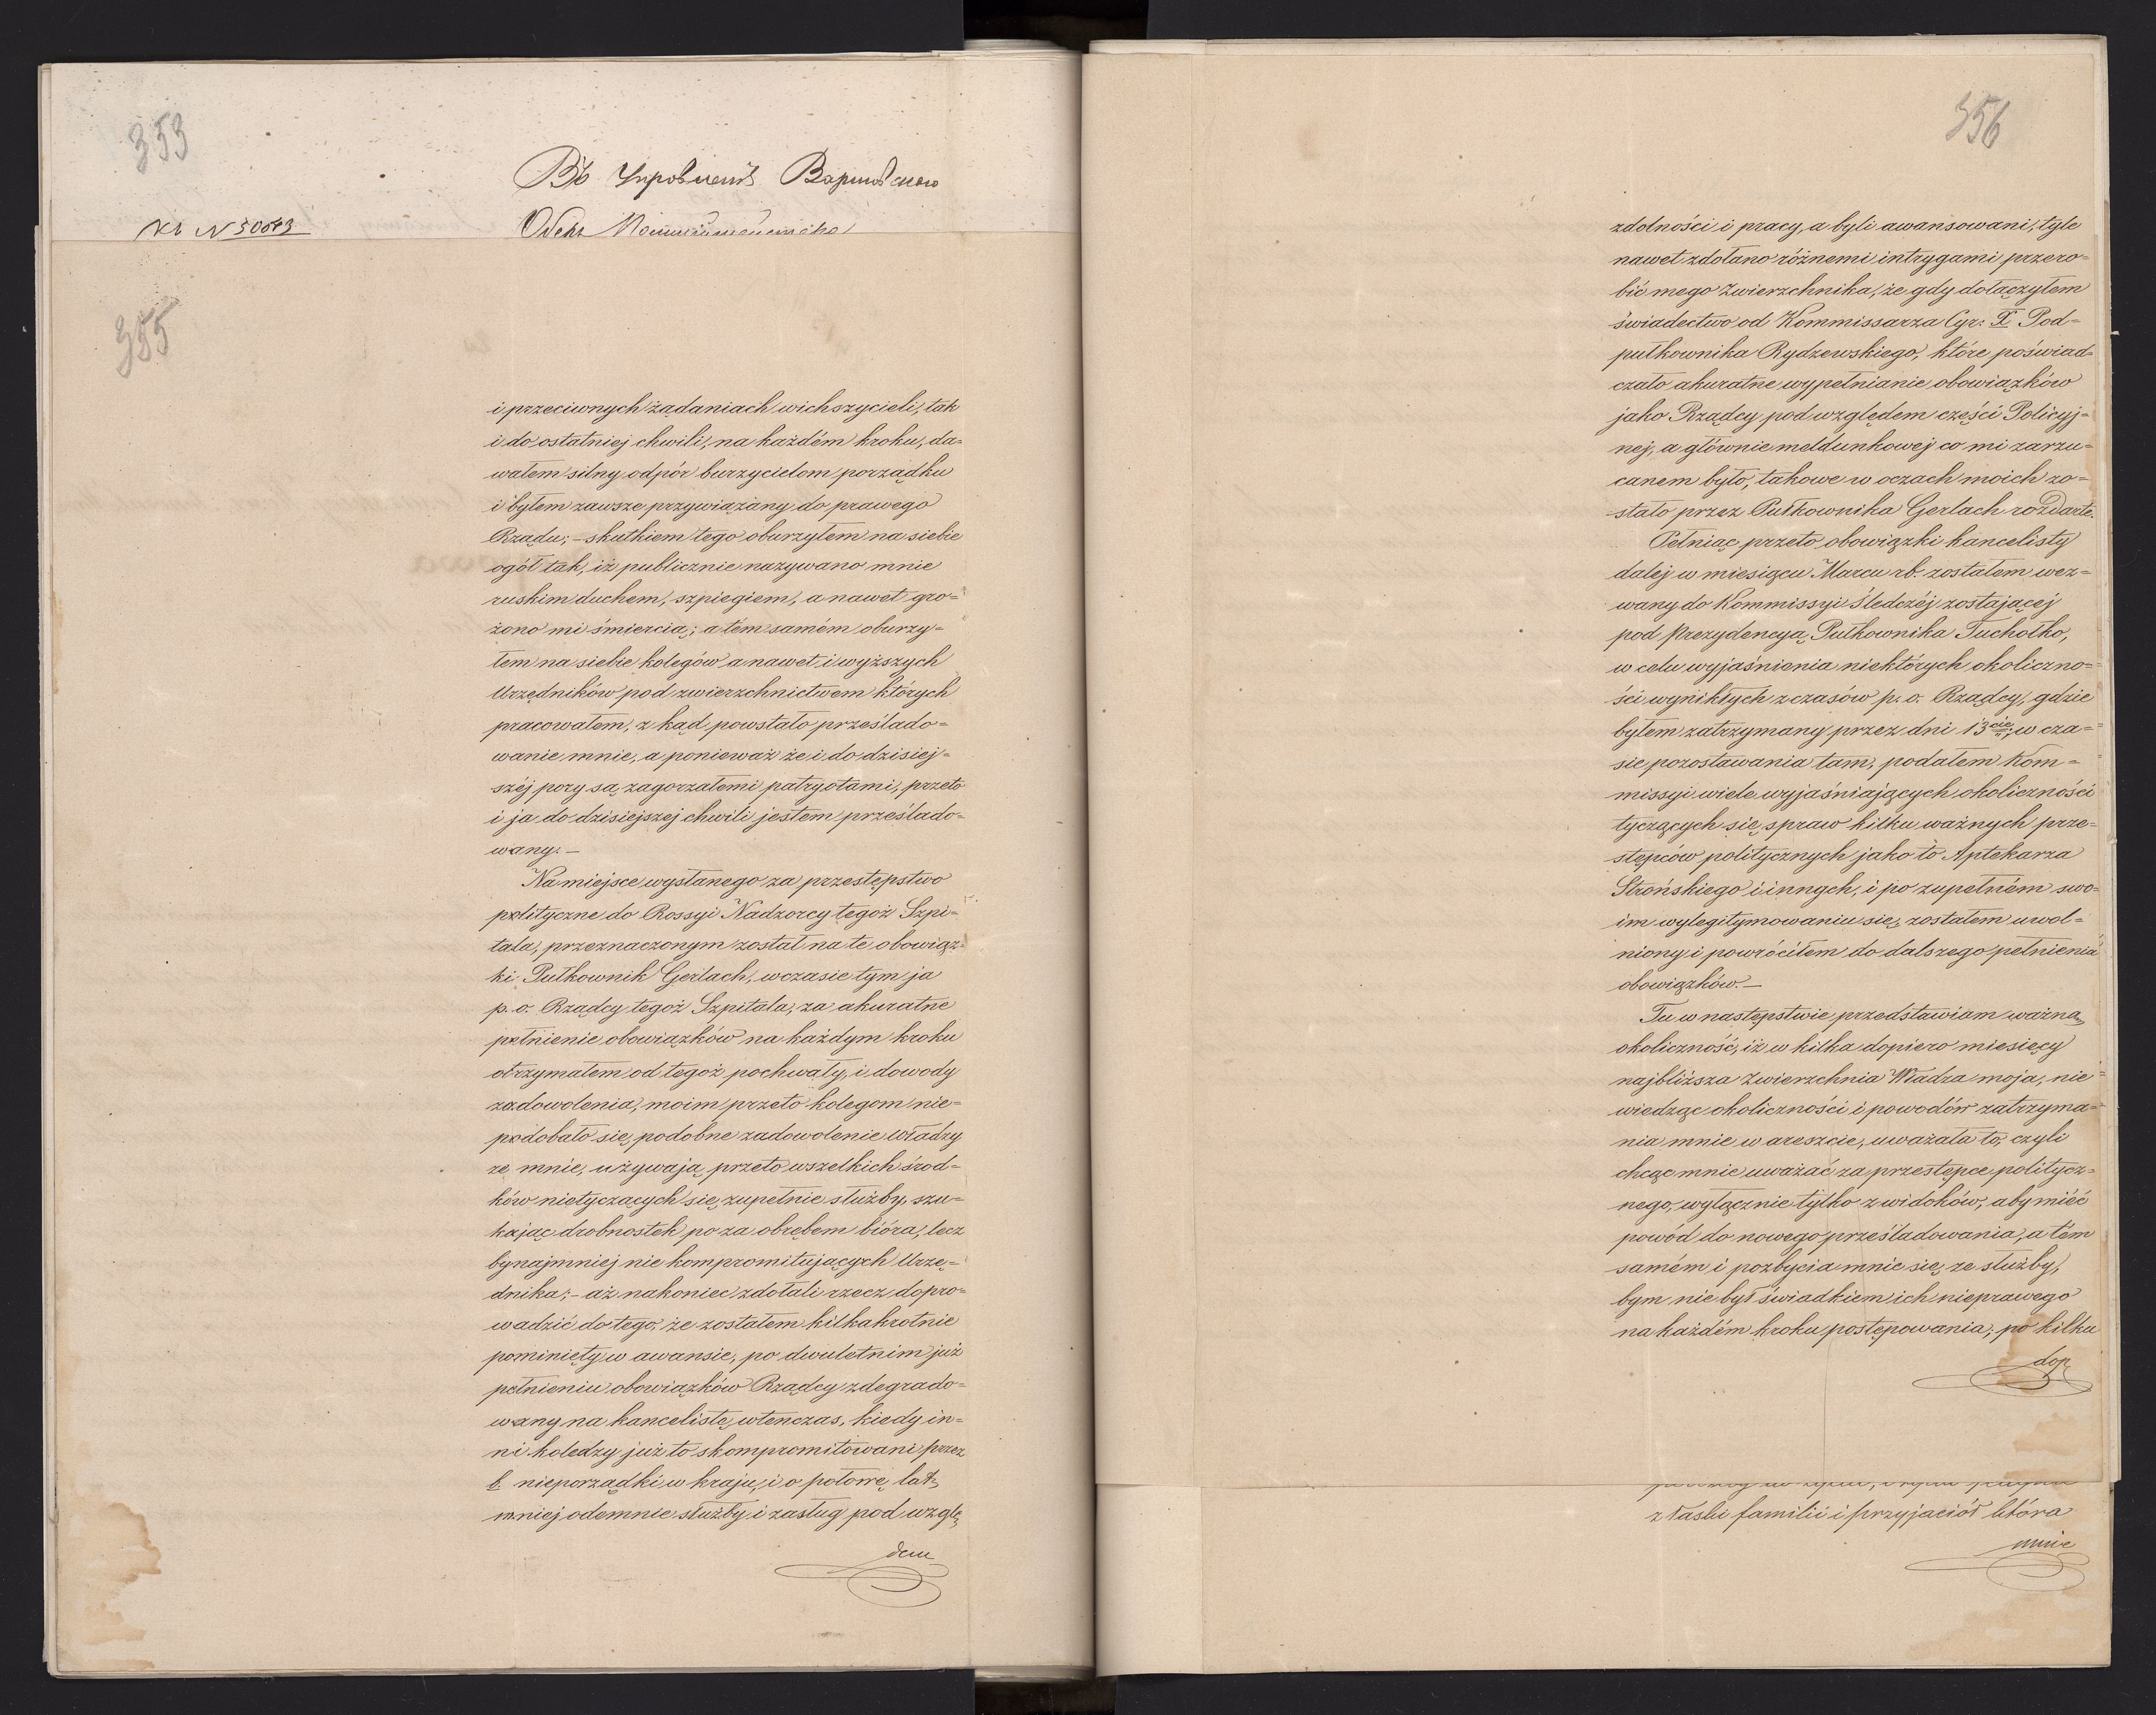 353
Въ Управленіе Варшавскаго
Къ N 30043
Оберъ Полиціймейстера
355
i przeciwnych żądaniach wichszycieli, tak
i do ostatniej chwili, na każdém kroku, da=
wałem silny odpór burzycielom porządku
i byłem zawsze przywiązany do prawego
Rządu; – skutkiem tego oburzyłem na siebie
ogół tak, iż publicznie nazywano mnie
ruskim duchem, szpiegiem, a nawet gro=
żono mi śmiercią; a tém samém oburzy=
łem na siebie kolegów a nawet i wyższych
Urzędników pod zwierzchnictwem których
pracowałem, z kąd powstało prześlado=
wanie mnie, a ponieważ że i do dzisiej=
széj pory są zagorzałemi patryotami, przeto
i ja do dzisiejszej chwili jestem prześlado=
wany. –
Na miejsce wysłanego za przestępstwo
polityczne do Rossyi Nadzorcy tegoż Szpi=
tala, przeznaczonym został na te obowiąz=
ki Pułkownik Gerlach, w czasie tym ja
p. o. Rządcy tegoż Szpitala, za akuratne
pełnienie obowiązków na każdym kroku
otrzymałem od tegoż pochwały, i dowody
zadowolenia, moim przeto kolegom nie=
podobało się podobne zadowolenie Władzy
ze mnie, używają przeto wszelkich środ=
ków nietyczących się zupełnie służby, szu=
kając drobnostek po za obrębem bióra, lecz
bynajmniej nie kompromitujących Urzę=
dnika; – aż nakoniec zdołali rzecz dopro=
wadzić do tego, że zostałem kilkakrotnie
pominięty w awansie, po dwuletnim już
pełnieniu obowiązków Rządcy zdegrado=
wany na kancelistę, wtenczas, kiedy in=
ni koledzy już to skompromitowani przez
b. nieporządki w kraju, i o połowę lat
mniej odemnie służby i zasług pod wzglę
dem
356
zdolności i pracy, a byli awansowani, tyle
nawet zdołano różnemi intrygami przero=
bić mego Zwierzchnika, że gdy dołączyłem
świadectwo od Kommissarza Cyr: X Pod=
pułkownika Rydzewskiego, które poświad=
czało akuratne wypełnianie obowiązków
jako Rządcy pod względem części Policyj=
nej, a głównie meldunkowej co mi zarzu=
canem było, takowe w oczach moich zo=
stało przez Pułkownika Gerlach rozdarte.
Pełniąc przeto obowiązki kancelisty
daléj w miesiącu Marcu rb. zostałem wez=
wany do Kommissyi Śledczéj zostającéj
pod Prezydencyą Pułkownika Tuchołko,
w celu wyjaśnienia niektórych okoliczno=
ści wynikłych z czasów p. o. Rządcy, gdzie
byłem zatrzymany przez dni 13cie, w cza=
sie pozostawania tam, podałem Kom=
missyi wiele wyjaśniających okoliczności
tyczących się spraw kilku ważnych prze=
stępców politycznych jako to Aptekarza
Strońskiego i innych, i po zupełném swo=
im wylegitymowaniu się, zostałem uwol=
niony i powróciłem do dalszego pełnienia
obowiązków. –
Tu w następstwie przedstawiam ważną
okoliczność, iż w kilka dopiero miesięcy
najbliższa Zwierzchnia Władza moja, nie
wiedząc okoliczności i powodów zatrzyma=
nia mnie w areszcie, uważała to, czyli
chcąc mnie uważać za przestępcę politycz=
nego, wyłącznie tylko z widoków, aby mićć
powód do nowego prześladowania, a tém
samém i pozbycia mnie się ze służby,
bym nie był świadkiem ich nieprawego
na każdém kroku postępowania, po kilku
dop
z łaski familii i przyjaciół która
mnie